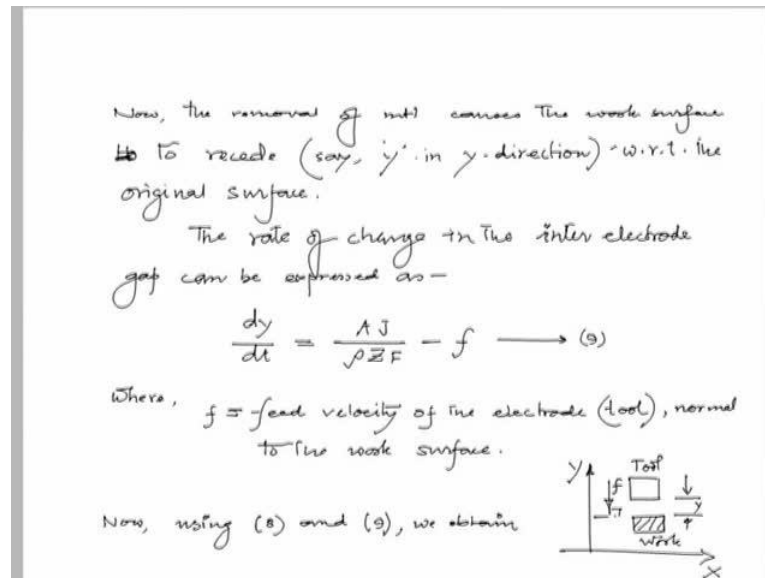 Now, the removal of mtl causes the work surface
to recede (say, 'y' in y-direction) w.r.t. the
original surface.
The rate of change in the inter electrode
gap can be expressed as –
dy/dt = AJ/ρZF - f ⟶ (9)
Where,
f = feed velocity of the electrode (tool), normal
to the work surface.
Now, using (8) and (9), we obtain
y
Tool
f
y
Work
x